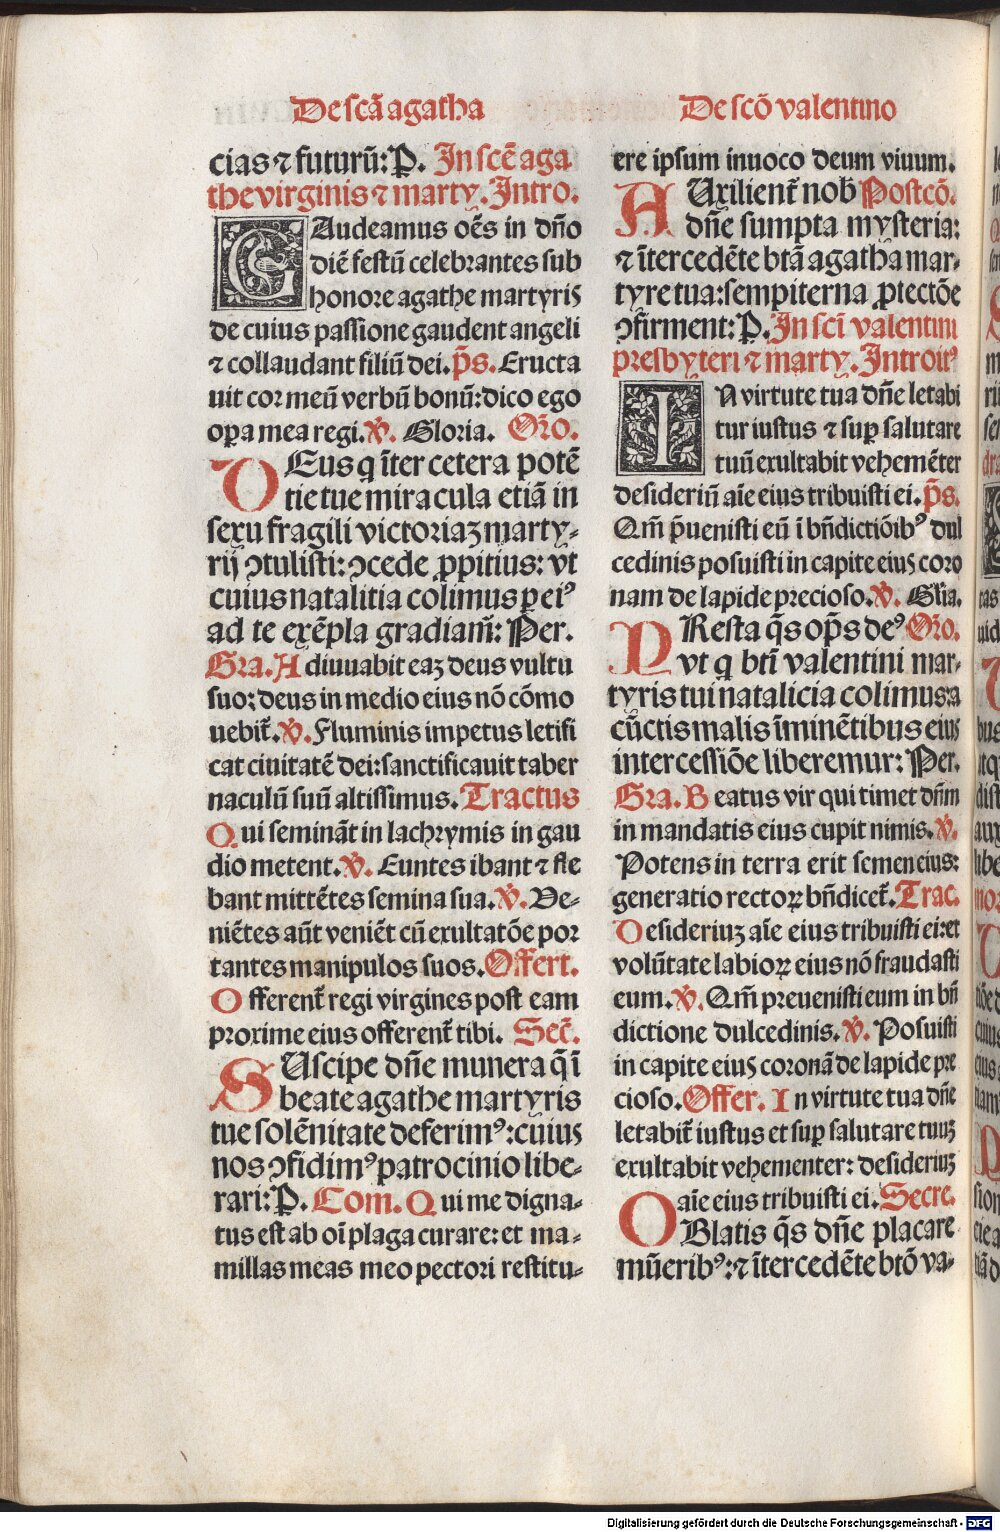 De scā agatha
cias ⁊ futurū: P. In scē aga
the virginis ⁊ marty. Intro.
GAudeamus oēs in dn̄o
diē festū celebrantes sub
honore agathe martyris
de cuius passione gaudent angeli
⁊ collaudant filiū dei. p̄s. Eructa
uit cor meū verbū bonū: dico ego
oꝑa mea regi. ℣. Gloria. Oŕo.
DEus q īter cetera potē
tie tue miracula etiā in
sexu fragili victoriaꝫ marty-
rij ꝯtulisti: ꝯcede ꝓpitius: vt
cuius natalitia colimus ꝑ eiꝰ
ad te exēpla gradiam̄: Per.
Gra. Adiuuabit eaꝫ deus vultu
suo: deus in medio eius nō cōmo
uebit̄. ℣. Fluminis impetus letifi
cat ciuitatē dei: sanctificauit taber
naculū suū altissimus. Tractus
Qui semināt in lachrymis in gau
dio metent. ℣. Euntes ibant ⁊ fle
bant mittētes semina sua. ℣. Ve-
niētes aūt veniēt cū exultatōe por
tantes manipulos suos. Offert.
Offerent̄ regi virgines post eam
proxime eius offerent̄ tibi. Sec̄.
SUscipe dn̄e munera q̄ ī
beate agathe martyris
tue solēnitate deferimꝰ: cuius
nos ꝯfidimꝰ patrocinio libe-
rari: P. Com. Qui me digna-
tus est ab oī plaga curare: et ma-
millas meas meo pectori restitu-
De scō valentino
ere ipsum inuoco deum viuum.
AUxilient̄ nob̄ Postcō.
dn̄e sumpta mysteria:
⁊ ītercedēte btā agatha mar-
tyre tua: sempiterna ꝓtectōe
ꝯfirment: P. In sci valentini
presbyteri ⁊ marty. Introitꝰ
IN virtute tua dn̄e letabi
tur iustus ⁊ suꝑ salutare
tuū exultabit vehemēter
desideriū aīe eius tribuisti ei. p̄s.
Qm̄ p̄uenisti eū ī bn̄dictiōibꝰ dul
cedinis posuisti in capite eius coro
nam de lapide precioso. ℣. Gl̄ia.
PResta q̄s op̄s deꝰ Oŕo.
vt q btī valentini mar-
tyris tui natalicia colimus: a
cūctis malis īminētibus eius
intercessiōe liberemur: Per.
Gra. Beatus vir qui timet dn̄m
in mandatis eius cupit nimis. ℣.
Potens in terra erit semen eius:
generatio rectoꝝ bn̄dicet̄. Trac.
Desideriuꝫ aīe eius tribuisti ei: et
volūtate labioꝝ eius nō fraudasti
eum. ℣. Qm̄ preuenisti eum in bn̄
dictione dulcedinis. ℣. Posuisti
in capite eius coronā de lapide pre
cioso. Offer. In virtute tua dn̄e
letabit̄ iustus et suꝑ salutare tuuꝫ
exultabit vehementer: desideriuꝫ
aīe eius tribuisti ei. Secre.
OBlatis q̄s dn̄e placare
mūeribꝰ: ⁊ ītercedēte btō va-
Digitalisierung gefördert durch die Deutsche Forschungsgemeinschaft - DFG